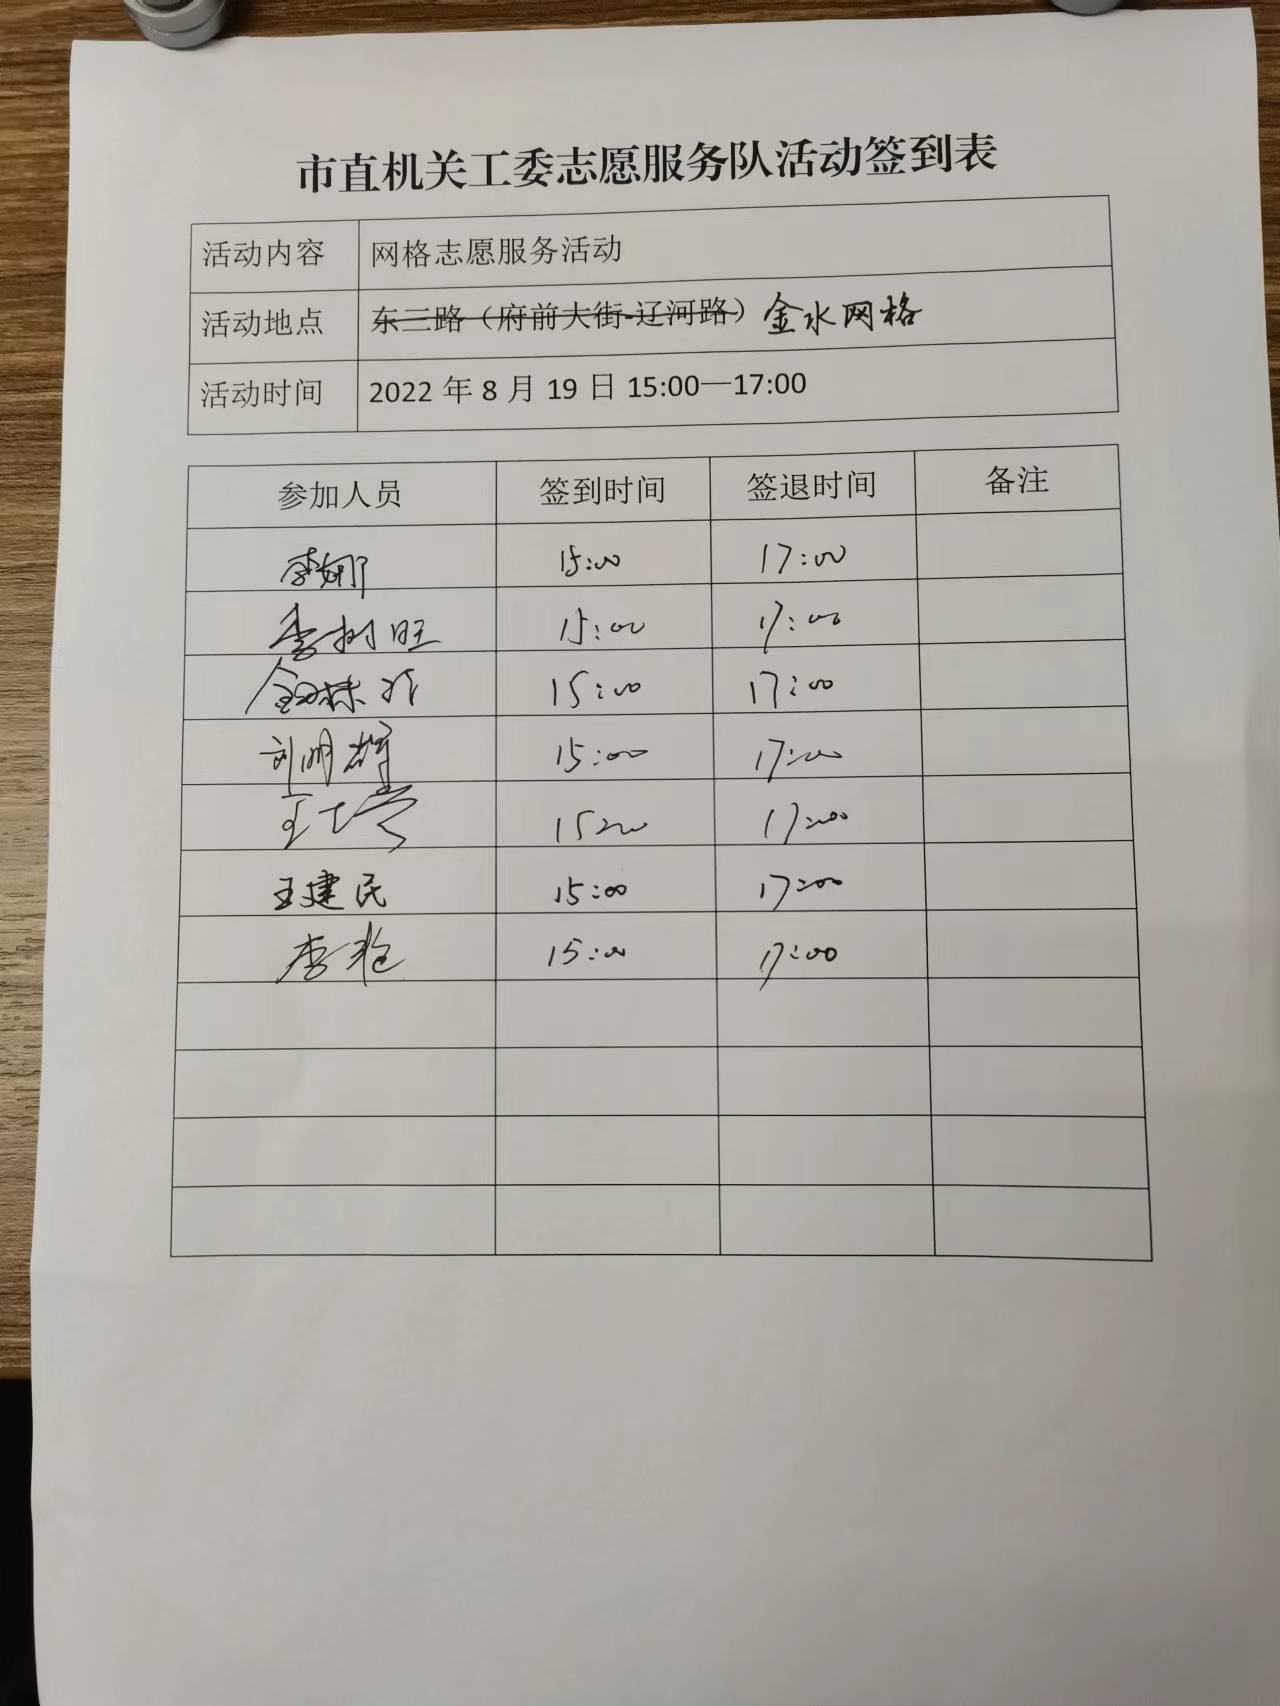 市直机关工委志愿服务队活动签到表
活动内容 网格志愿服务活动
活动地点 东三路（府前大街-辽河路）金水网格
活动时间 2022 年 8 月 19 日 15:00—17:00
参加人员 签到时间 签退时间 备注
李娜 15:00 17:00
李树旺 15:00 17:00
15:00 17:00
刘明辉 15:00 17:00
王 15:00 17:00
王建民 15:00 17:00
李 15:00 17:00